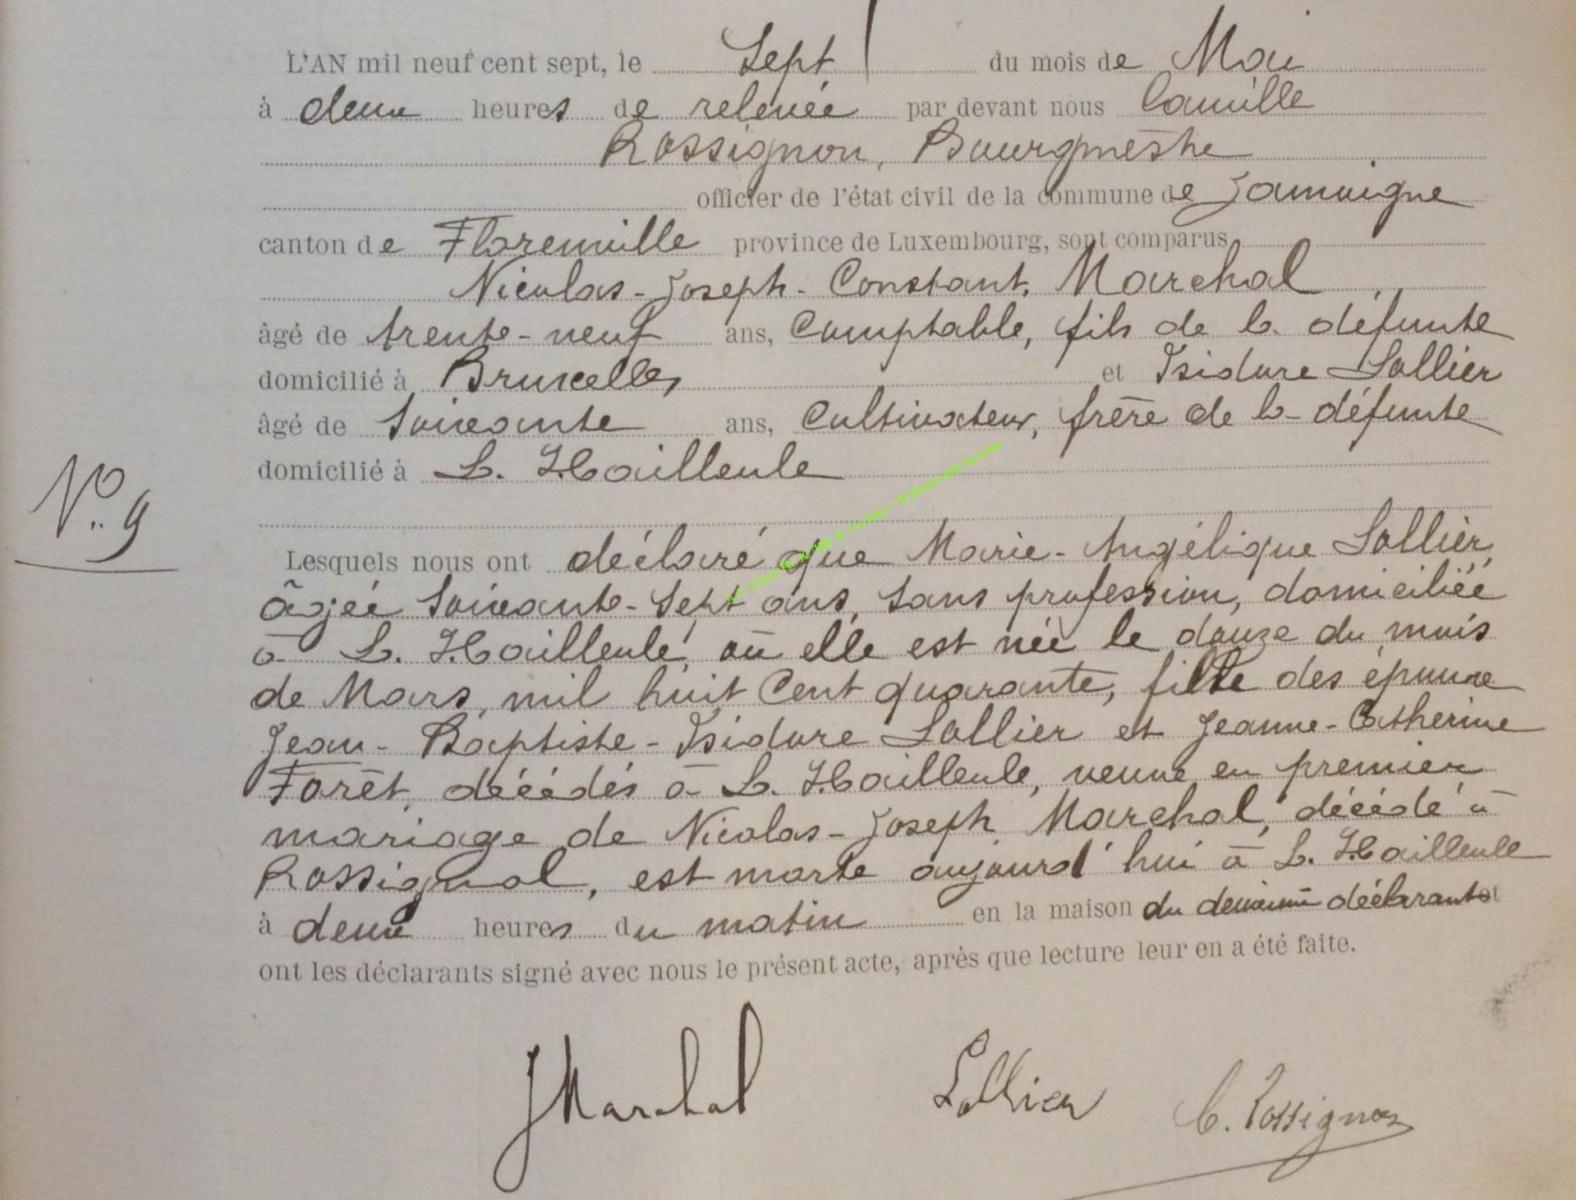 L'AN mil neuf cent sept, le Sept du mois de Mai
à deux heures de relevée par devant nous Camille
Rossignon, Bourgmestre
officier de l'état civil de la commune de Jamoigne
canton de Florenville province de Luxembourg, sont comparus
Nicolas-Joseph-Constant Marchal
âgé de trente-neuf ans, Comptable, fils de la défunte
domicilié à Bruxelles et Isidore Lallier
âgé de Soixante ans, Cultivateur, frère de la défunte
domicilié à La Hailleule
N° 9
Lesquels nous ont déclaré que Marie-Angélique Lallier,
âgée Soixante-Sept ans, sans profession, domiciliée
à La Hailleule, où elle est née le douze du mois
de Mars, mil huit Cent quarante, fille des époux
Jean-Baptiste-Isidore Lallier et Jeanne-Catherine
Forêt, décédés à La Hailleule, veuve en premier
mariage de Nicolas-Joseph Marchal, décédé à
Rossignol, est morte aujourd'hui à La Hailleule
à deux heures du matin en la maison du deuxième déclarant et
ont les déclarants signé avec nous le présent acte, après que lecture leur en a été faite.
JMarchal Lallier C. Rossignon